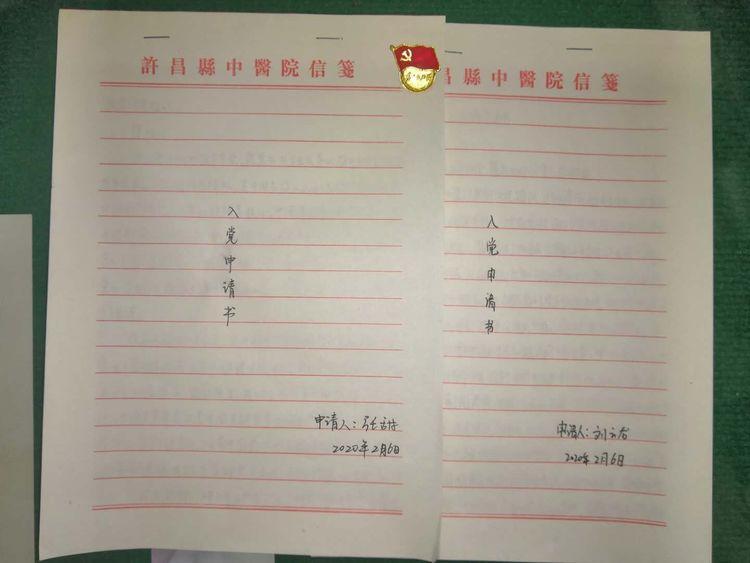 許昌縣中醫院信箋
入党申请书
申请人：
2020年2月6日
昌縣中醫院信箋
入党申请书
申请人：刘
2020年2月6日